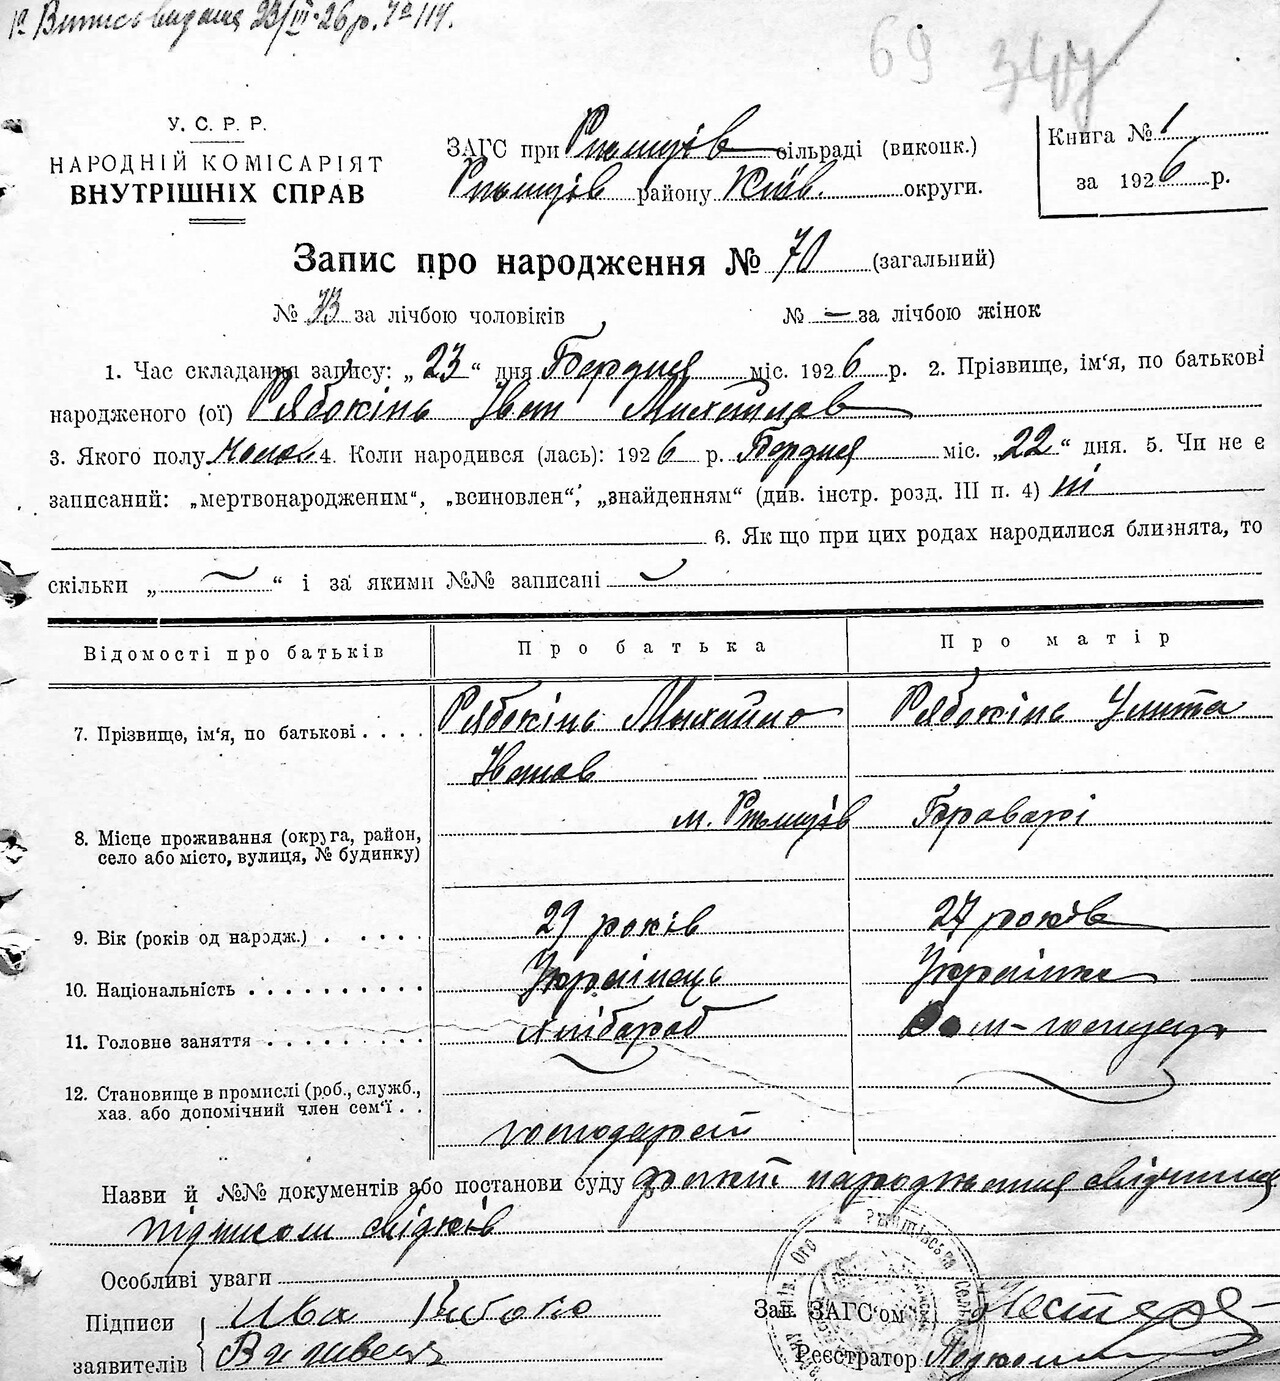 Випись видана 23/III-26 р. за № 114.
69 347
У. С. Р. Р.
НАРОДНІЙ КОМІСАРІЯТ
ВНУТРІШНІХ СПРАВ
ЗАГС при Ржищів сільраді (виконк.)
Ржищів району Київ. округи.
Книга № 1
за 1926 р.
Запис про народження № 70 (загальний)
№ 33 за лічбою чоловіків № — за лічбою жінок
1. Час складання запису: „23“ дня Бердня міс. 1926 р. 2. Прізвище, ім‘я, по батькові
народженого (ої) Рябокінь Іван Михайлов
3. Якого полу 4. Коли народився (лась): 1926 р. Бердня міс. „22“ дня. 5. Чи не є
записаний: „мертвонародженим“, „всиновлен“, „знайденням“ (див. інстр. розд. III п. 4) ні
6. Як що при цих родах народилися близнята, то
скільки „ — “ і за якими №№ записані —
Відомості про батьків Про батька Про матір
7. Прізвище, ім‘я, по батькові . . . . Рябокінь Михайло Рябокінь Улита
Іванов
8. Місце проживання (округа, район,
село або місто, вулиця, № будинку) м. Ржищів Броварі
9. Вік (років од народж.) . . . . . 29 років 27 років
10. Національність . . . . . . . . . . Українець Українка
11. Головне заняття . . . . . . . . Хлібороб Дом-господар
12. Становище в промислі (роб., служб.,
хаз. або допомічний член сем‘ї . .
господарст
Назви й №№ документів або постанови суду факт народження свідчиться
підписом свідків
Особливі уваги
Підписи
заявителів
Зав. ЗАГС‘ом Нестер
Реєстратор